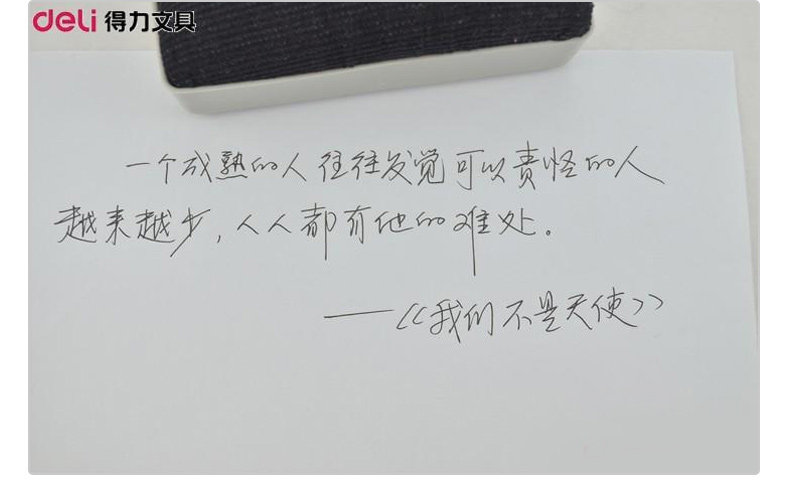 deli 得力文具
一个成熟的人往往发觉可以责怪的人
越来越少,人人都有他的难处。
——《我们不是天使》